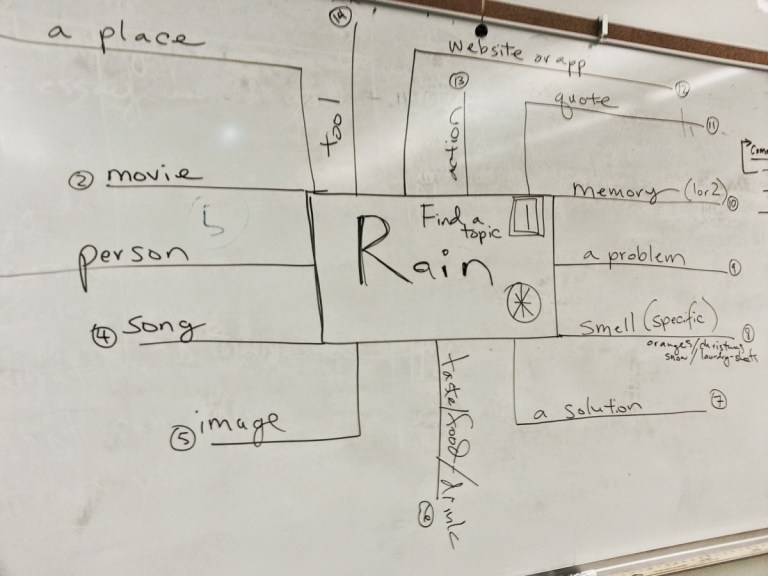 a place
② movie
person
④ song
⑤ image
⑭
tool
website or app
⑫
⑬
action
quote
⑪
memory (1or2)
⑩
a problem
⑨
smell (specific)
⑧
oranges/christmas
snow/laundry-sheets
a solution
⑦
taste/food/drink
⑥
Find a
topic
1
Rain
5